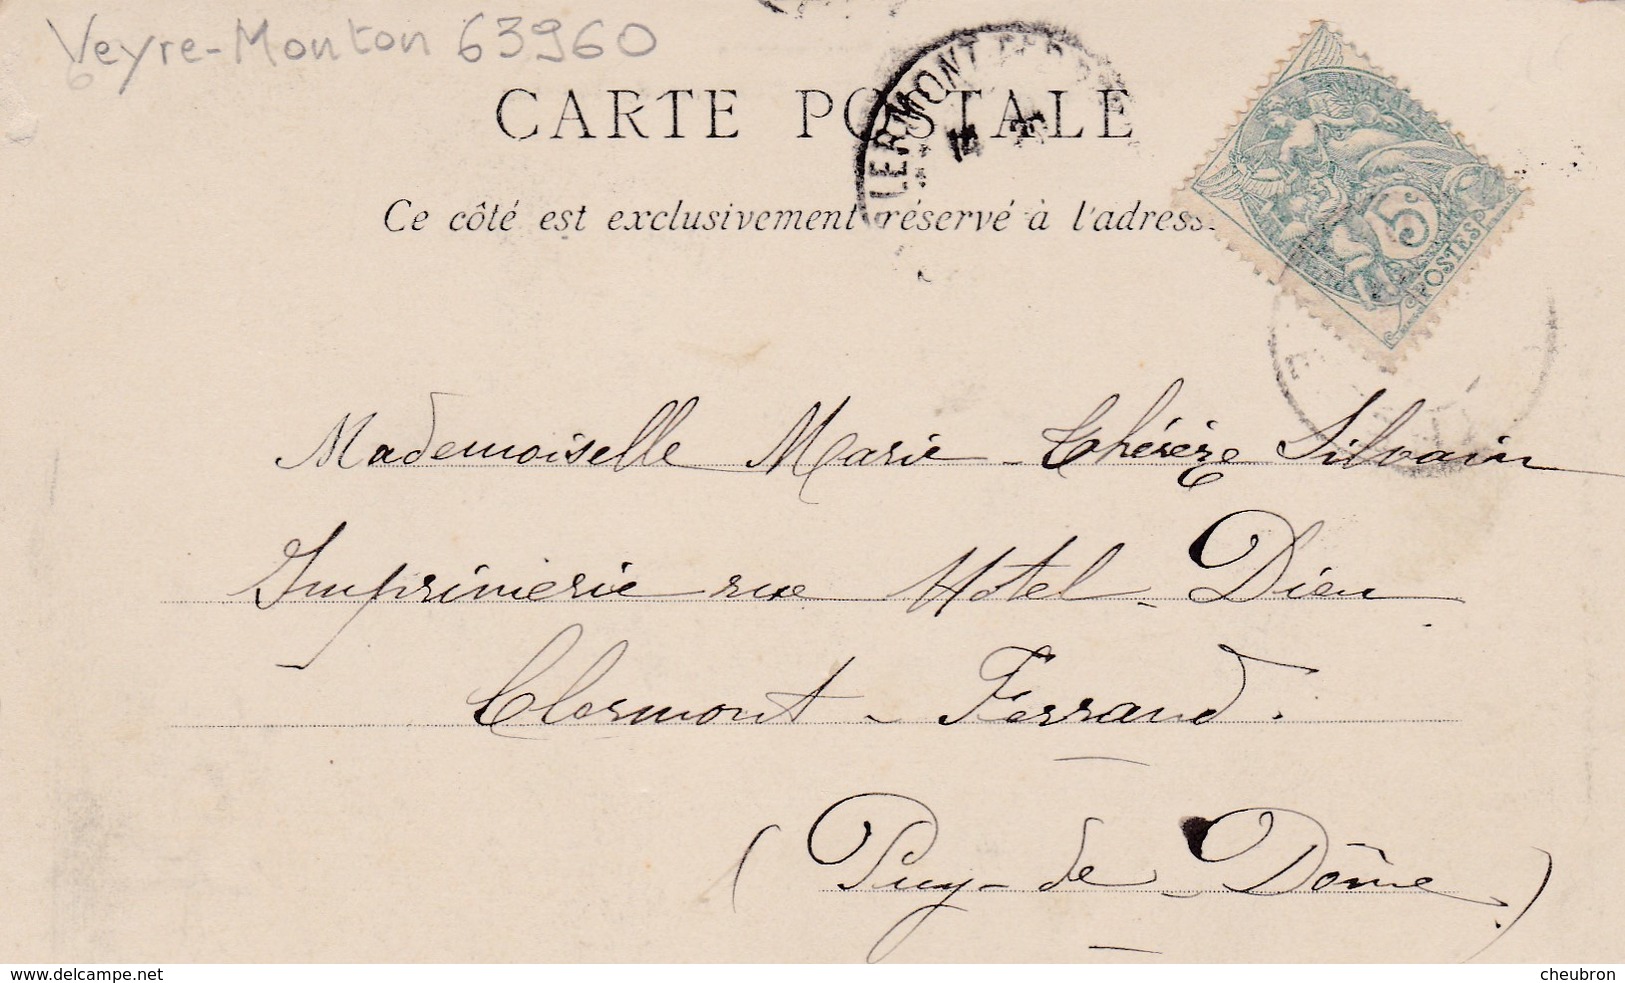 Veyre-Monton 63960
CARTE POSTALE
LERMONT
Ce côté est exclusivement réservé à l'adress
5c
POSTES
Mademoiselle Marie-Thérèze Silvain
Imprimerie rue Hôtel-Dieu
Clermont-Ferrand.
(Puy-de-Dôme.)
www.delcampe.net
cheubron